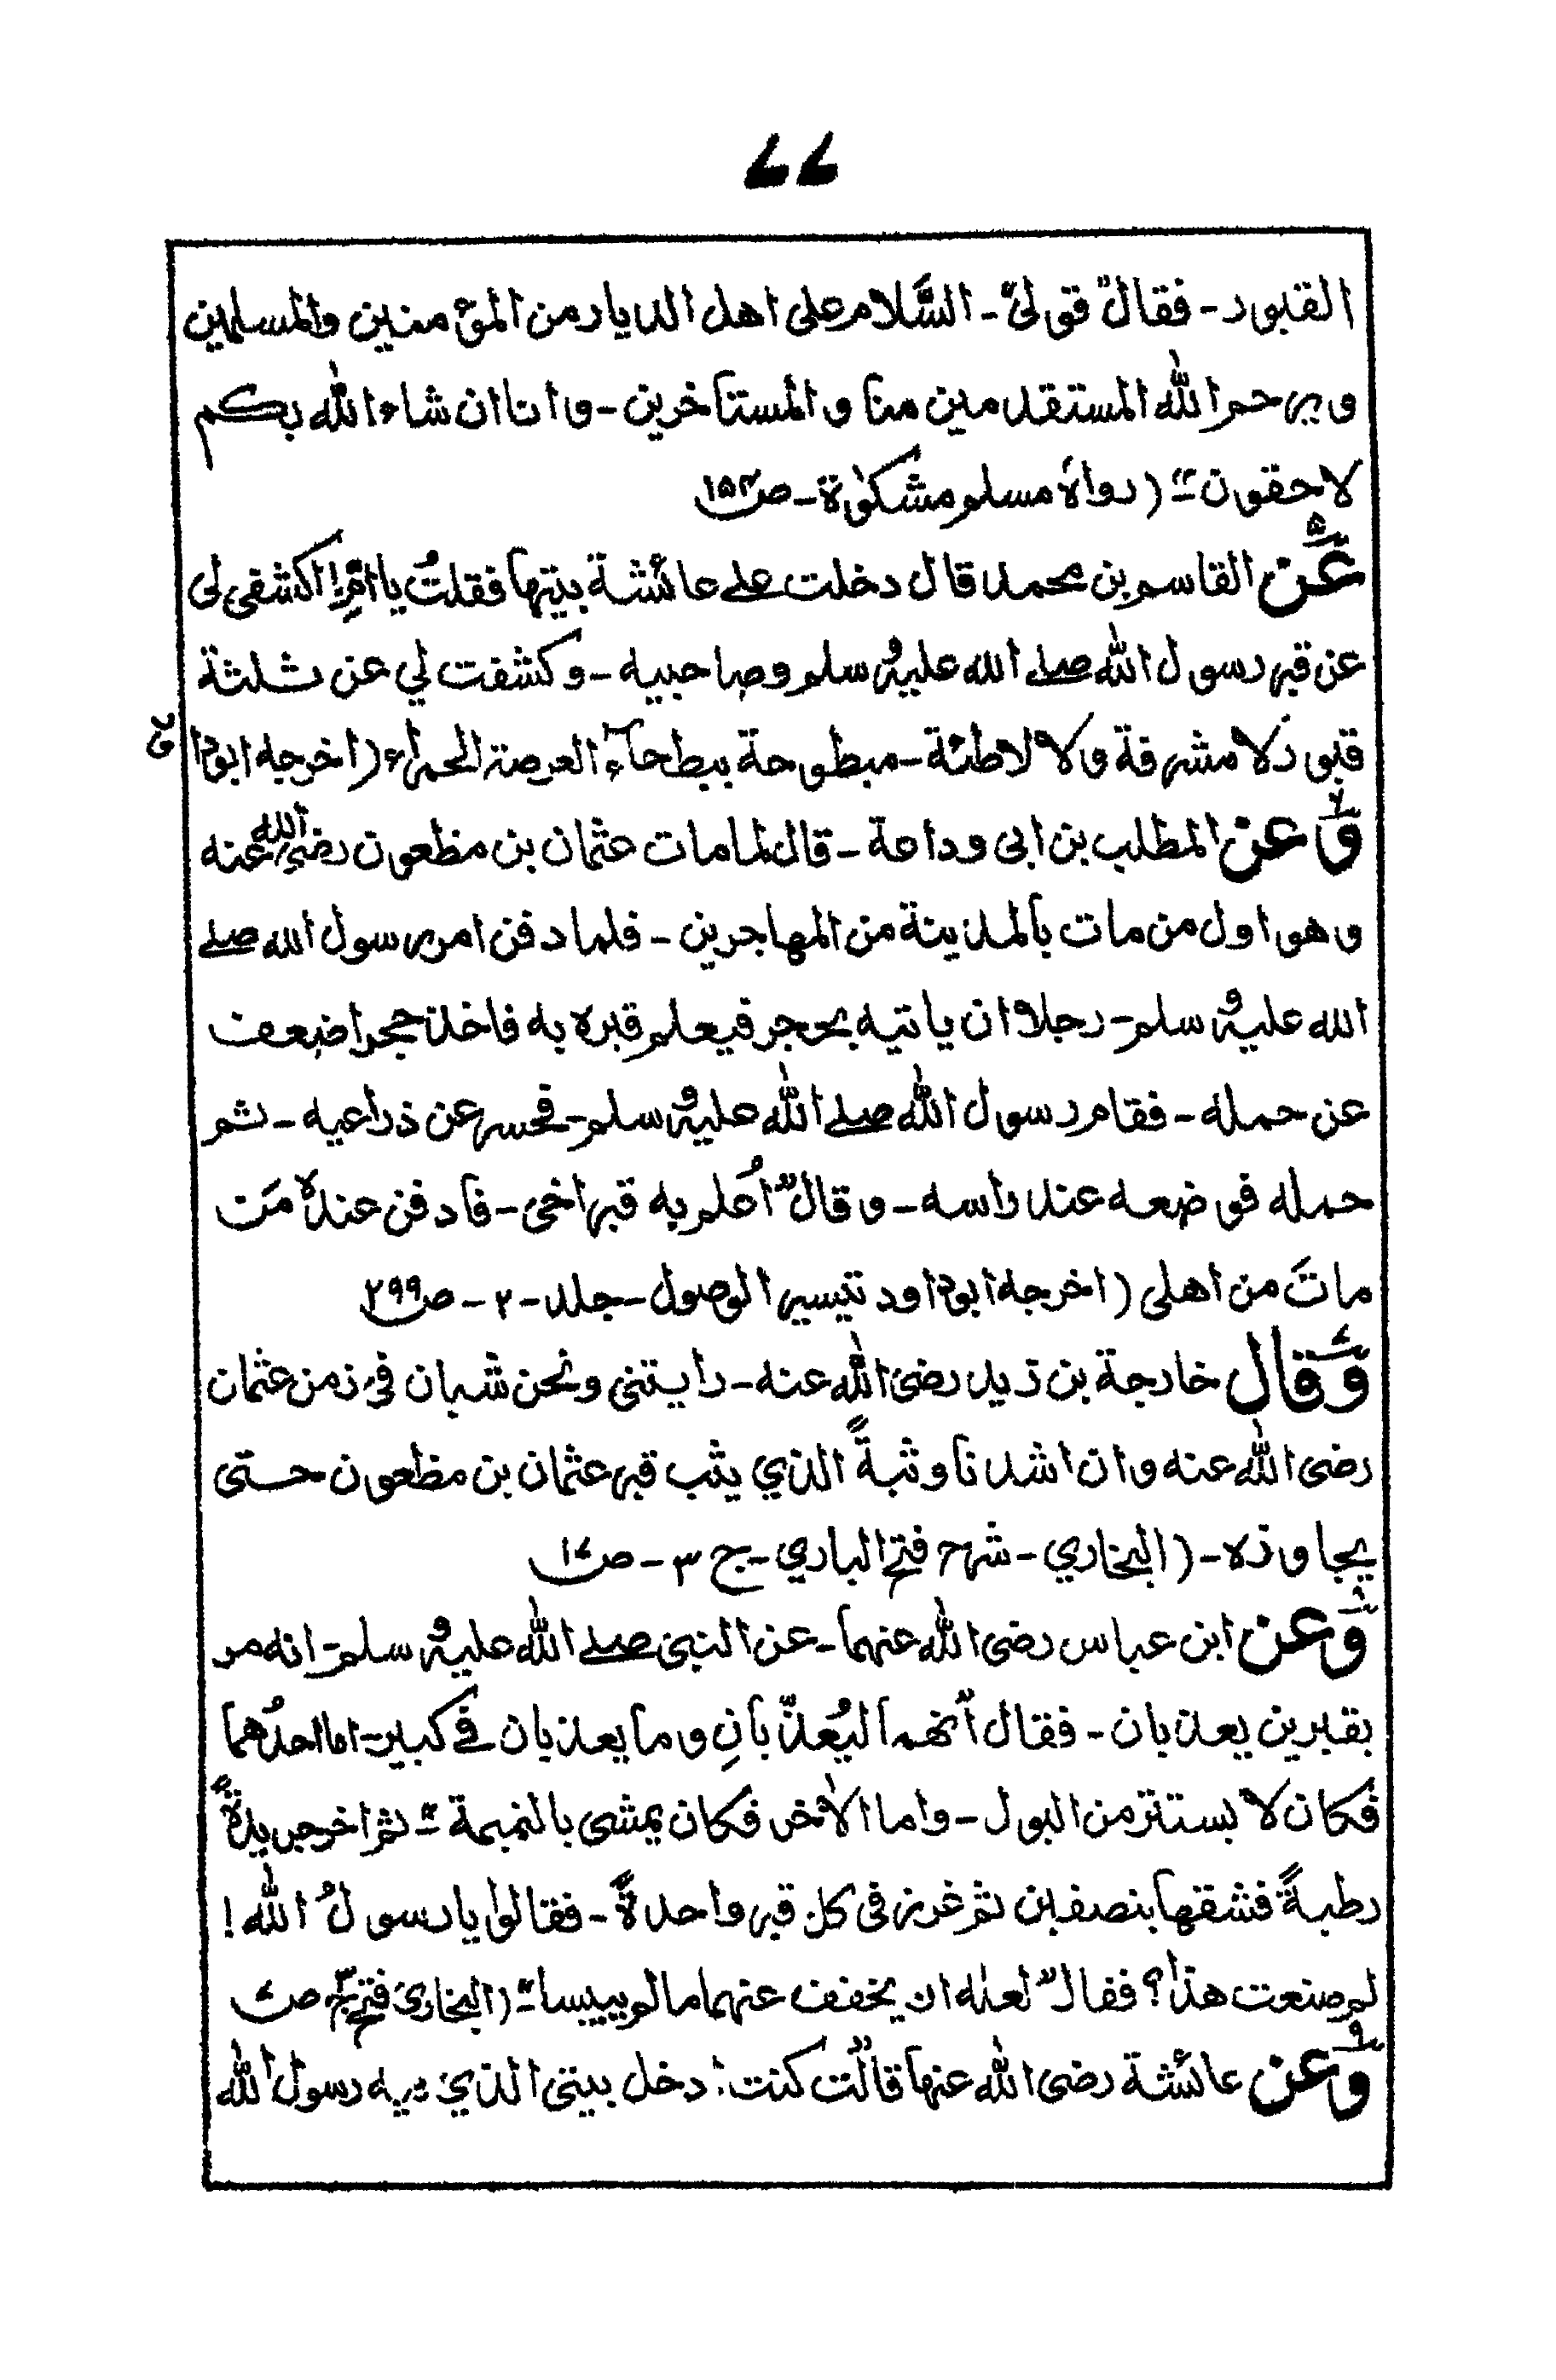 ۷۷
القبور - فقال" قولی" - السَّلام علی اهل الدیار من المؤمنین والمسلمین
ویرحم اللّٰه المستقدمین منا والمستاخرین - وانا ان شاء اللّٰه بکم
لاحقون" - (رواہ مسلم مشکوٰة - ص۱۵۴
۵ عَن القاسم بن محمد قال دخلت علے عائشة بیتها فقلتُ یا امّ! اکشفی لی
عن قبر رسول اللّٰه صلے الله علیه وسلم وصاحبیه - وکشفت لي عن ثلثة
قبور لا مشرفة ولا لاطئة - مبطوحة ببطحآء العرصة الحمراء (اخرجه ابوداود
۶ وعن المطلب بن ابی وداعة - قال لما مات عثمان بن مظعون رضی الله عنه
وهو اول من مات بالمدینة من المهاجرین - فلما دفن امر رسول الله صلے
الله علیه وسلم - رجلا ان یاتیه بحجر فیعلم قبره به فاخذ حجرا ضعف
عن حمله - فقام رسول اللّٰه صلے اللّٰه علیه وسلم - فحسر عن ذراعیه - ثم
حمله فوضعه عند راسه - وقال" اُعلم به قبر اخی - فادفن عندہ مَن
ماتَ من اهلی (اخرجه ابوداود تیسیر الوصول - جلد - ۲ - ص۲۹۹
۷ وقال خارجة بن زید رضی اللّٰه عنه - رایتنی ونحن شبان فی زمن عثمان
رضی اللّٰه عنه وان اشدنا وثبةً الذي یثب قبر عثمان بن مظعون حتی
یجاوزه - (البخاري - شرح فتح الباري - ج ۳ - ص۱۷
۸ وعن ابن عباس رضی اللّٰه عنهما - عن النبی صلے اللّٰه علیه وسلم - انه مر
بقبرین یعذبان - فقال" انهما لیُعذّبانِ وما یعذبان فی کبیر - اما احدُهما
فکان لا یستتر من البول - واما الاٰخر فکان یمشی بالنمیمة" - ثم اخذ جریدةً
رطبةً فشقها بنصفین ثم غرز فی کل قبر واحدةً - فقالوا یا رسولُ اللّٰه!
لم صنعت هذا؟ فقال" لعله ان یخفف عنهما مالم ییبسا" - (البخاری فتح ج۳ ص۷
۹ وعن عائشة رضی اللّٰه عنها قالت" کنت ادخل بیتی الذي فیه رسول اللّٰه